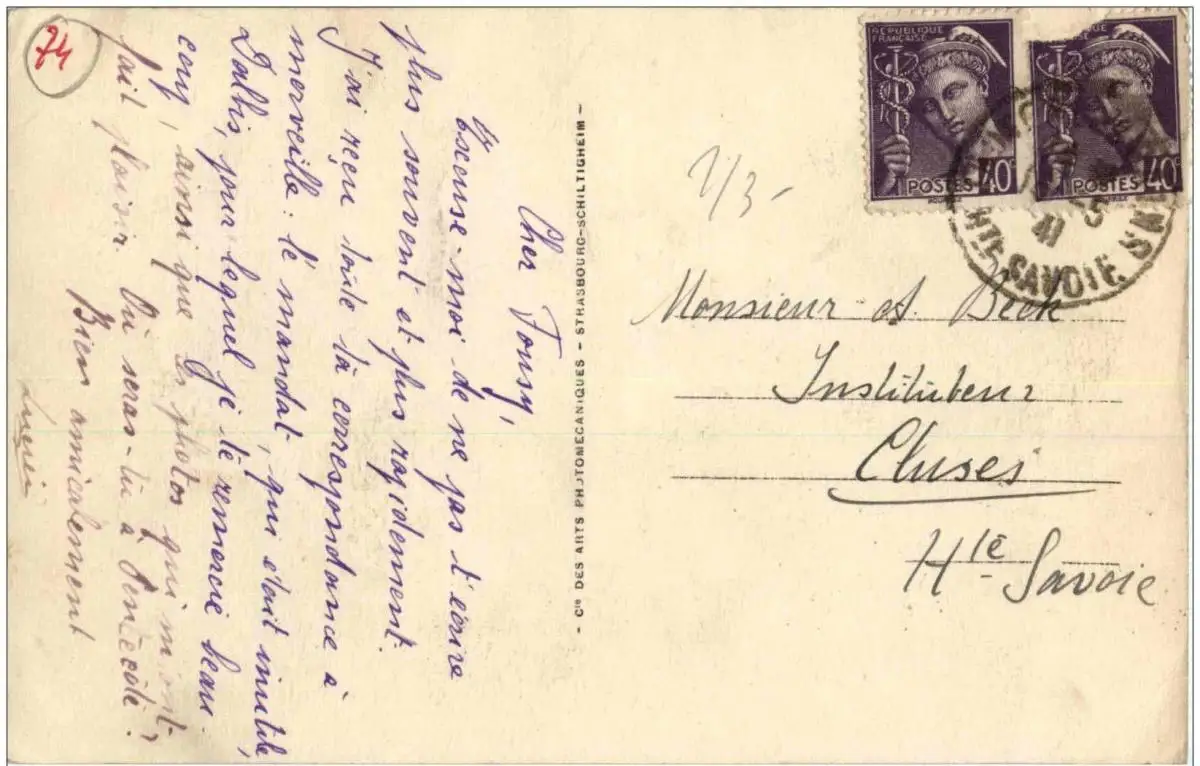 74
Cher Tousy,
Excuse-moi de ne pas t'écrire
plus souvent et plus rapidement.
J'ai reçu toute ta correspondance à
merveille : le mandat, qui était inutile,
Dalbis, pour lequel je te remercie beau-
coup, ainsi que les photos qui m'ont
fait plaisir. Où seras-tu à Pentecôte ?
Bien amicalement
- Cie DES ARTS PHOTOMECANIQUES - STRASBOURG-SCHILTIGHEIM -
1/3 -
REPUBLIQUE
FRANÇAISE
POSTES 40c
POSTES 40c
41
HTE SAVOIE
Monsieur A. Beck
Instituteur
Cluses
Hte Savoie